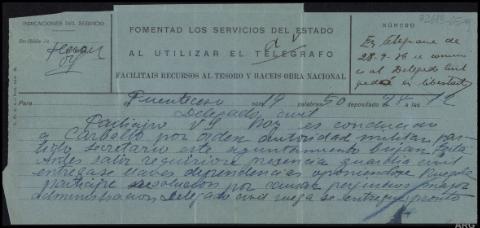 INDICACIONES DEL SERVICIO
FOMENTAD LOS SERVICIOS DEL ESTADO
AL UTILIZAR EL TELÉGRAFO
FACILITAIS RECURSOS AL TESORO Y HACEIS OBRA NACIONAL
NÚMERO
En telegrama de
28-9-36 se comunica
al Delegado Civil
en libertad
Para
Puenteceso núm 19 palabras 50 depositado 28 12
Delegado civil
Participo V. hoy es conducido
a Carballo por orden autoridad militar
secretario este ayuntamiento
Antes salir requiriose presencia guardia civil
entregase llaves dependencias oponiendose
participe por causar perjuicios mayor
administracion Delegado civil ruega se entregue pronto
ARG